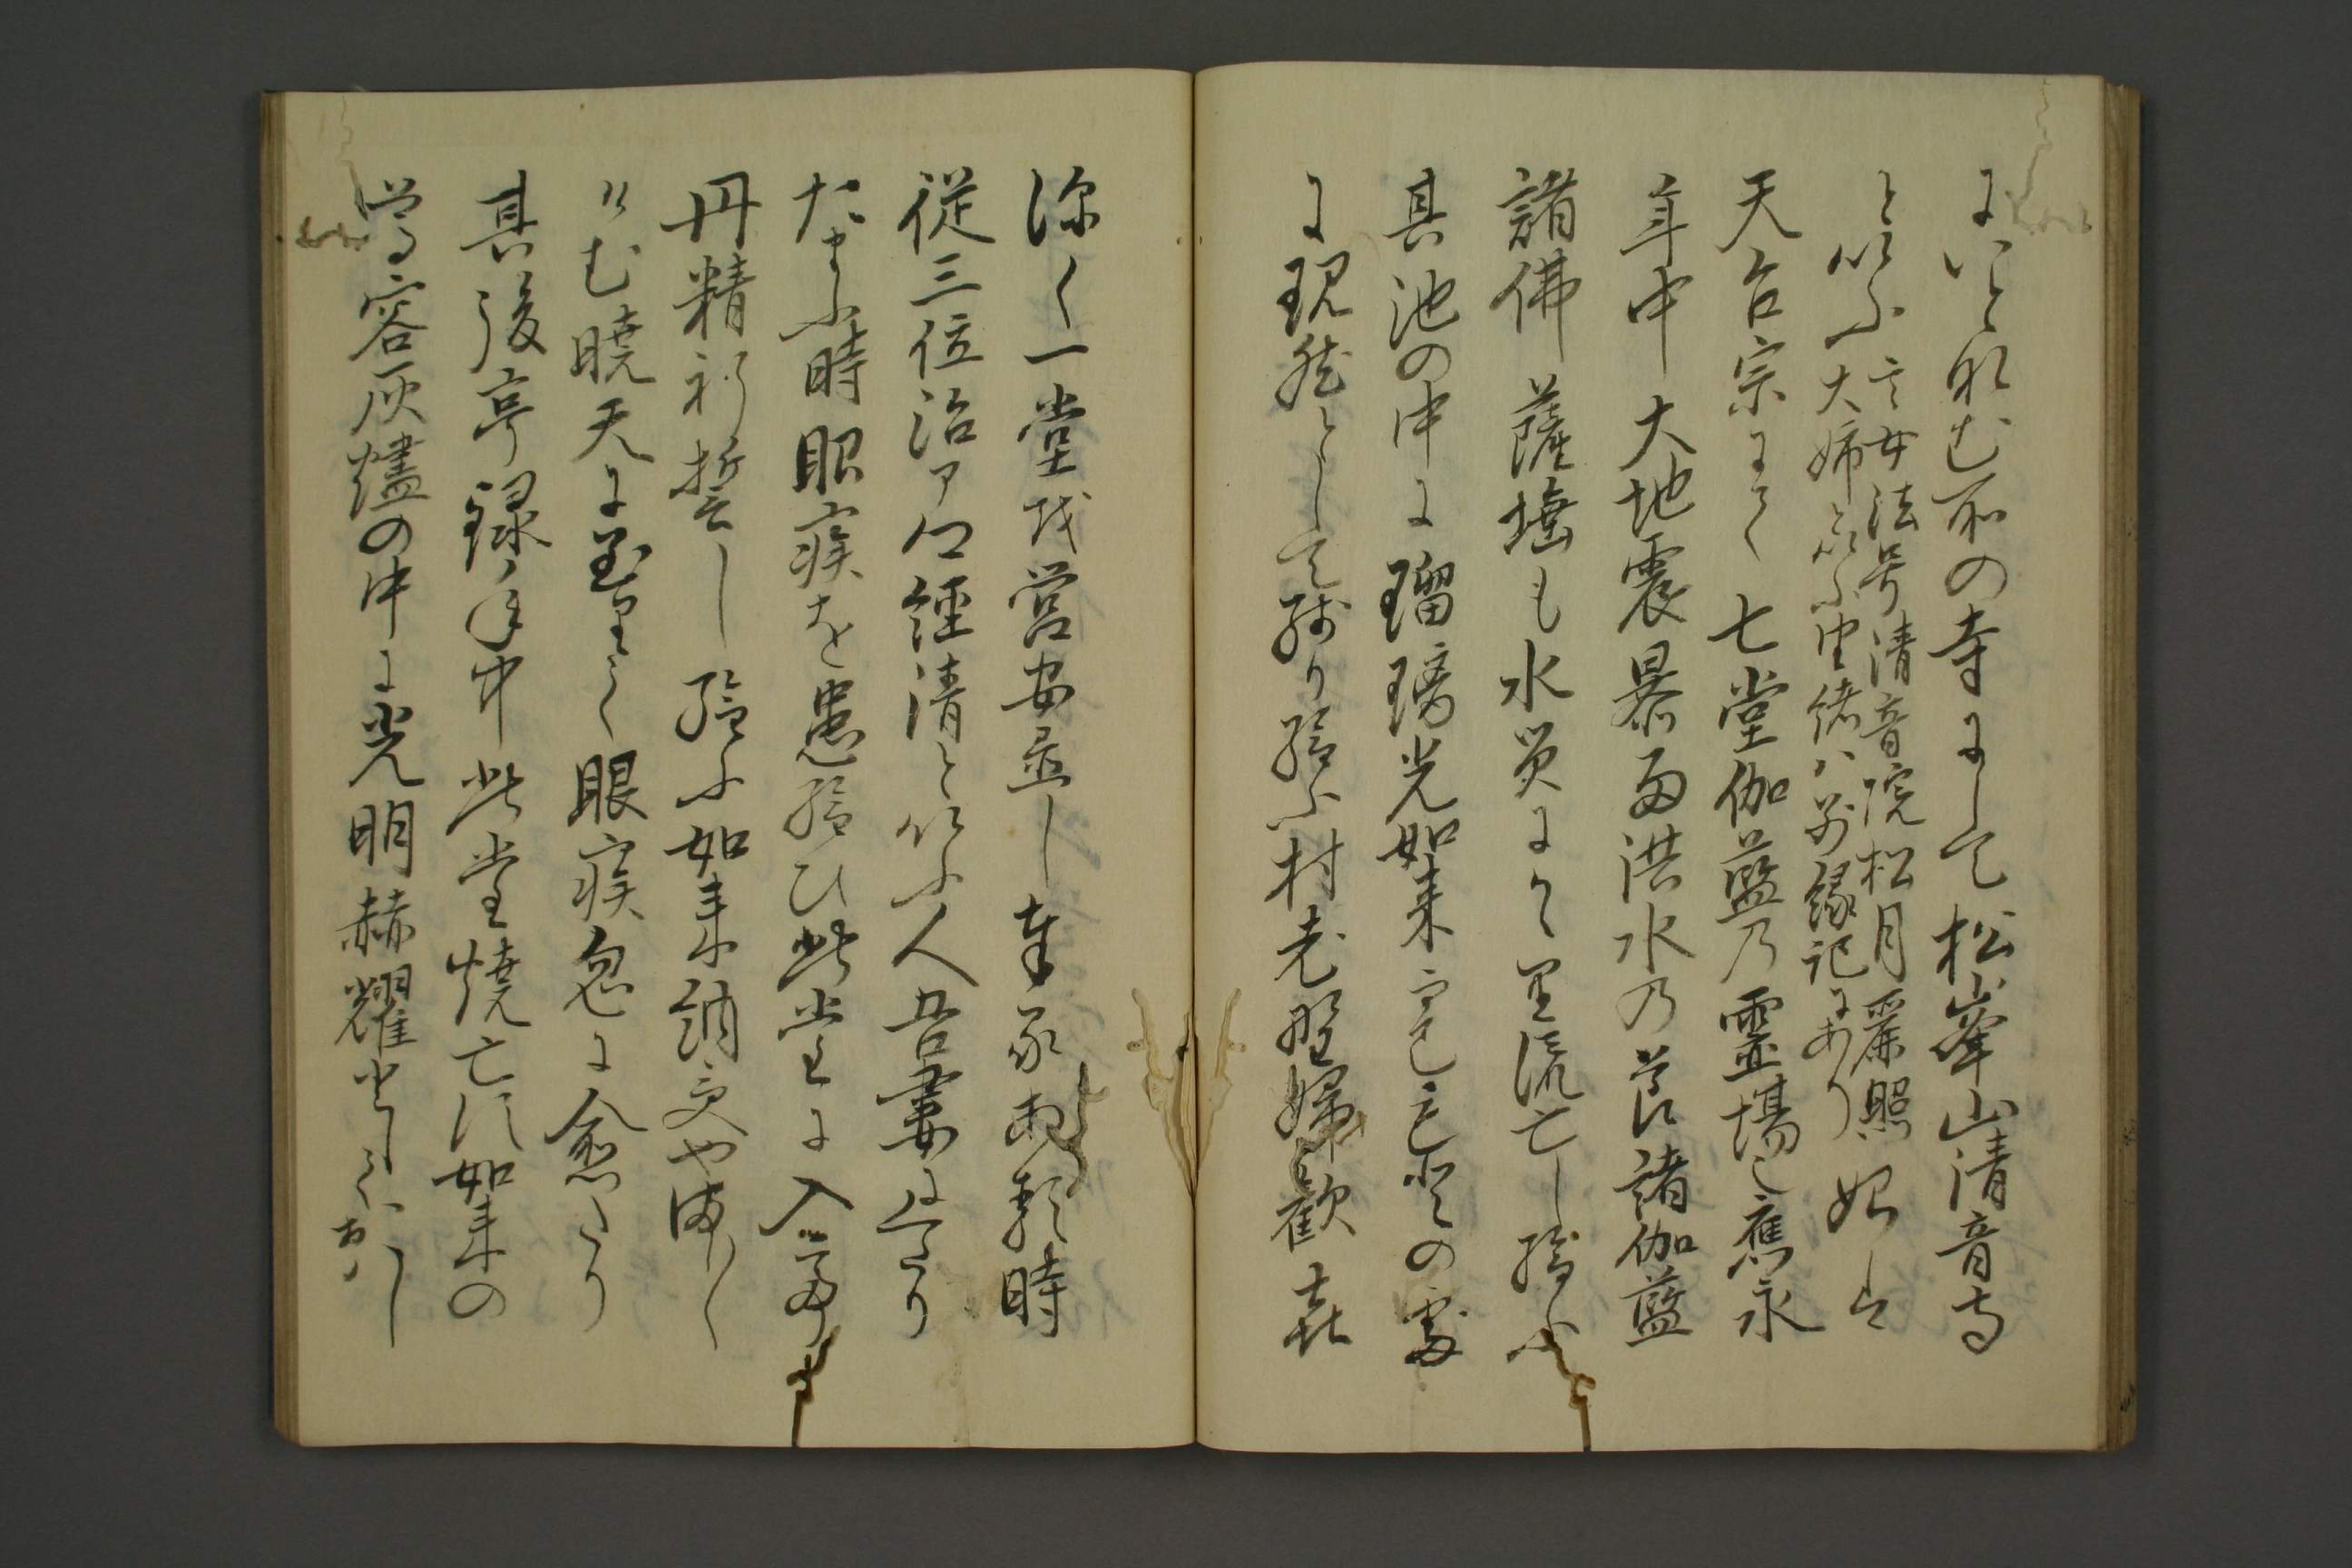 にいとなむ所の寺にして松峯山清音寺
といふ
其女法号清音院松月麗照
大姉といふ由緒ハ別縁記にあり
始は
天台宗にて七堂伽藍乃霊場也應永
年中大地震暴雨洪水の節諸伽藍
諸佛薩埵も水災にて流亡し給ふ
其池の中に瑠璃光如来
に現然として残り給ふ村老野婦歓喜
深く一堂越営安置し奉る
時
従三位治ア卿経清といふ人吾妻に下り
たまふ時眼疾を患給ひ此堂に入
丹精祈誓し給ふ如来納受や満し〱
けむ暁天に至りて眼疾忽に愈たり
其後享録年中此堂焼亡に如来の
尊容灰燼の中に光明赫耀として
おハし